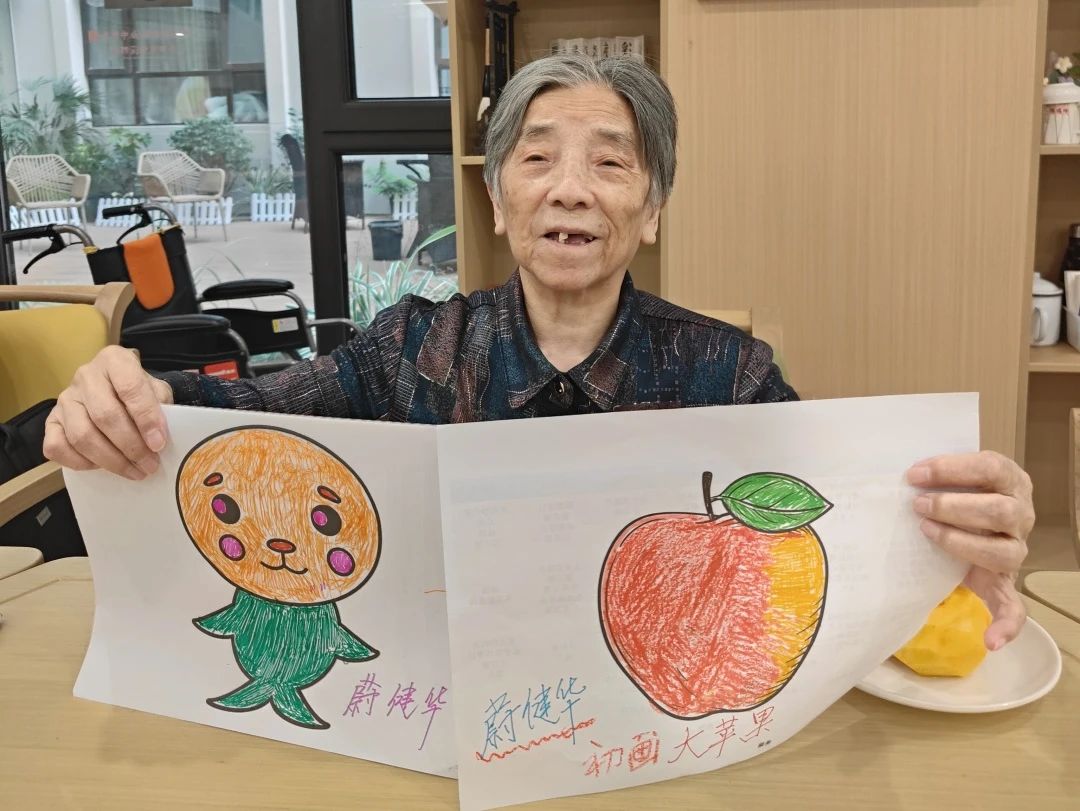 蔚健华
蔚健华
初画大苹果